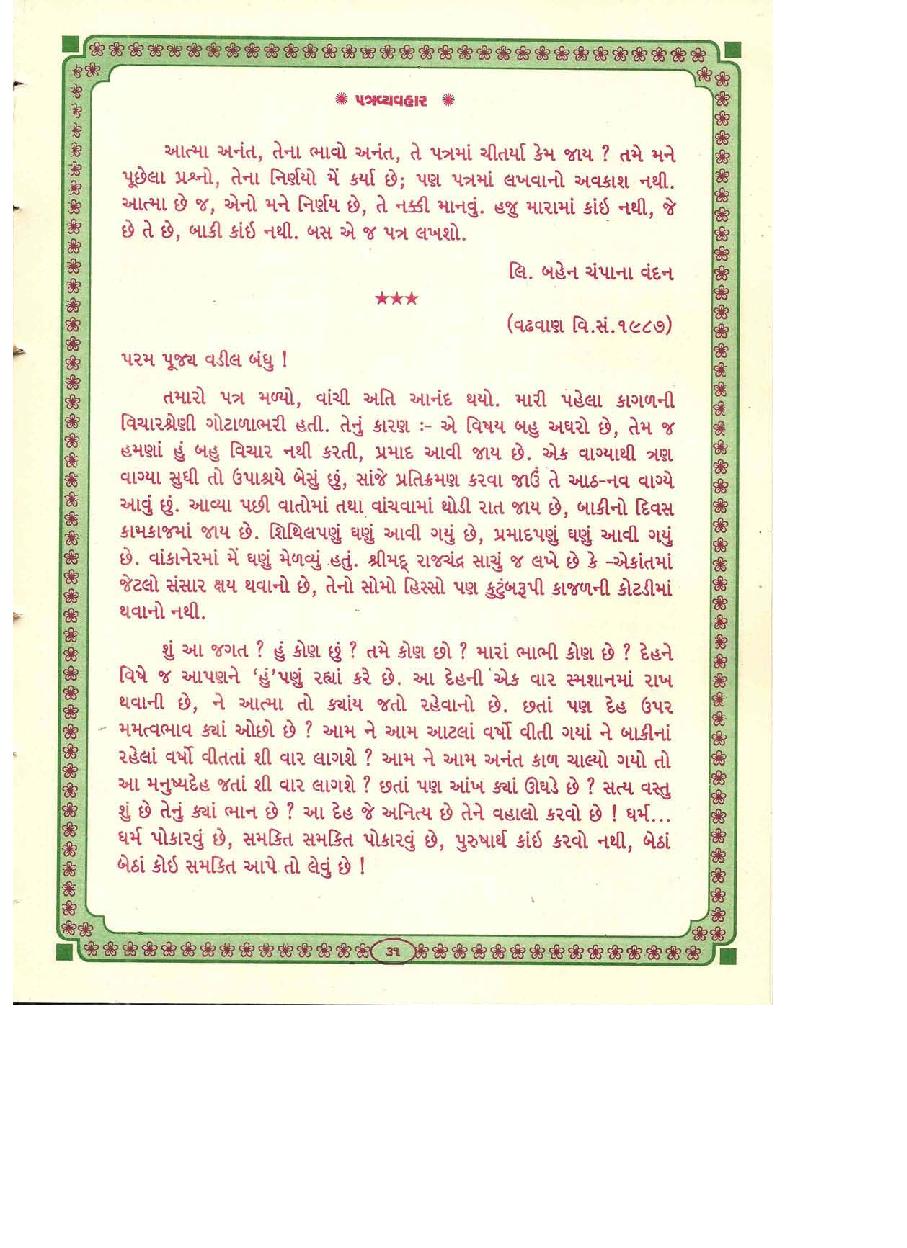 પત્રવ્યવહાર
આત્મા અનંત, તેના ભાવો અનંત, તે પત્રમાં ચીતર્યા કેમ જાય ? તમે મને
પૂછેલા પ્રશ્નો, તેના નિર્ણયો મેં કર્યા છે; પણ પત્રમાં લખવાનો અવકાશ નથી.
આત્મા છે જ, એનો મને નિર્ણય છે, તે નક્કી માનવું. હજુ મારામાં કાંઈ નથી, જે
છે તે છે, બાકી કાંઈ નથી. બસ એ જ પત્ર લખશો.
લિ. બહેન ચંપાના વંદન
★★★
(વઢવાણ વિ.સં.૧૯૮૭)
પરમ પૂજ્ય વડીલ બંધુ !
તમારો પત્ર મળ્યો, વાંચી અતિ આનંદ થયો. મારી પહેલા કાગળની
વિચારશ્રેણી ગોટાળાભરી હતી. તેનું કારણ :- એ વિષય બહુ અઘરો છે, તેમ જ
હમણાં હું બહુ વિચાર નથી કરતી, પ્રમાદ આવી જાય છે. એક વાગ્યાથી ત્રણ
વાગ્યા સુધી તો ઉપાશ્રયે બેસું છું, સાંજે પ્રતિક્રમણ કરવા જાઉં તે આઠ-નવ વાગ્યે
આવું છું. આવ્યા પછી વાતોમાં તથા વાંચવામાં થોડી રાત જાય છે, બાકીનો દિવસ
કામકાજમાં જાય છે. શિથિલપણું ઘણું આવી ગયું છે, પ્રમાદપણું ઘણું આવી ગયું
છે. વાંકાનેરમાં મેં ઘણું મેળવ્યું હતું. શ્રીમદ્ રાજચંદ્ર સાચું જ લખે છે કે -એકાંતમાં
જેટલો સંસાર ક્ષય થવાનો છે, તેનો સોમો હિસ્સો પણ કુટુંબરૂપી કાજળની કોટડીમાં
થવાનો નથી.
શું આ જગત ? હું કોણ છું ? તમે કોણ છો ? મારાં ભાભી કોણ છે ? દેહને
વિષે જ આપણને ‘હું’પણું રહ્યાં કરે છે. આ દેહની એક વાર સ્મશાનમાં રાખ
થવાની છે, ને આત્મા તો ક્યાંય જતો રહેવાનો છે. છતાં પણ દેહ ઉપર
મમત્વભાવ ક્યાં ઓછો છે ? આમ ને આમ આટલાં વર્ષો વીતી ગયાં ને બાકીનાં
રહેલાં વર્ષો વીતતાં શી વાર લાગશે ? આમ ને આમ અનંત કાળ ચાલ્યો ગયો તો
આ મનુષ્યદેહ જતાં શી વાર લાગશે ? છતાં પણ આંખ ક્યાં ઊઘડે છે ? સત્ય વસ્તુ
શું છે તેનું ક્યાં ભાન છે ? આ દેહ જે અનિત્ય છે તેને વહાલો કરવો છે ! ધર્મ...
ધર્મ પોકારવું છે, સમકિત સમકિત પોકારવું છે, પુરુષાર્થ કાંઈ કરવો નથી, બેઠાં
બેઠાં કોઈ સમકિત આપે તો લેવું છે !
૩૧